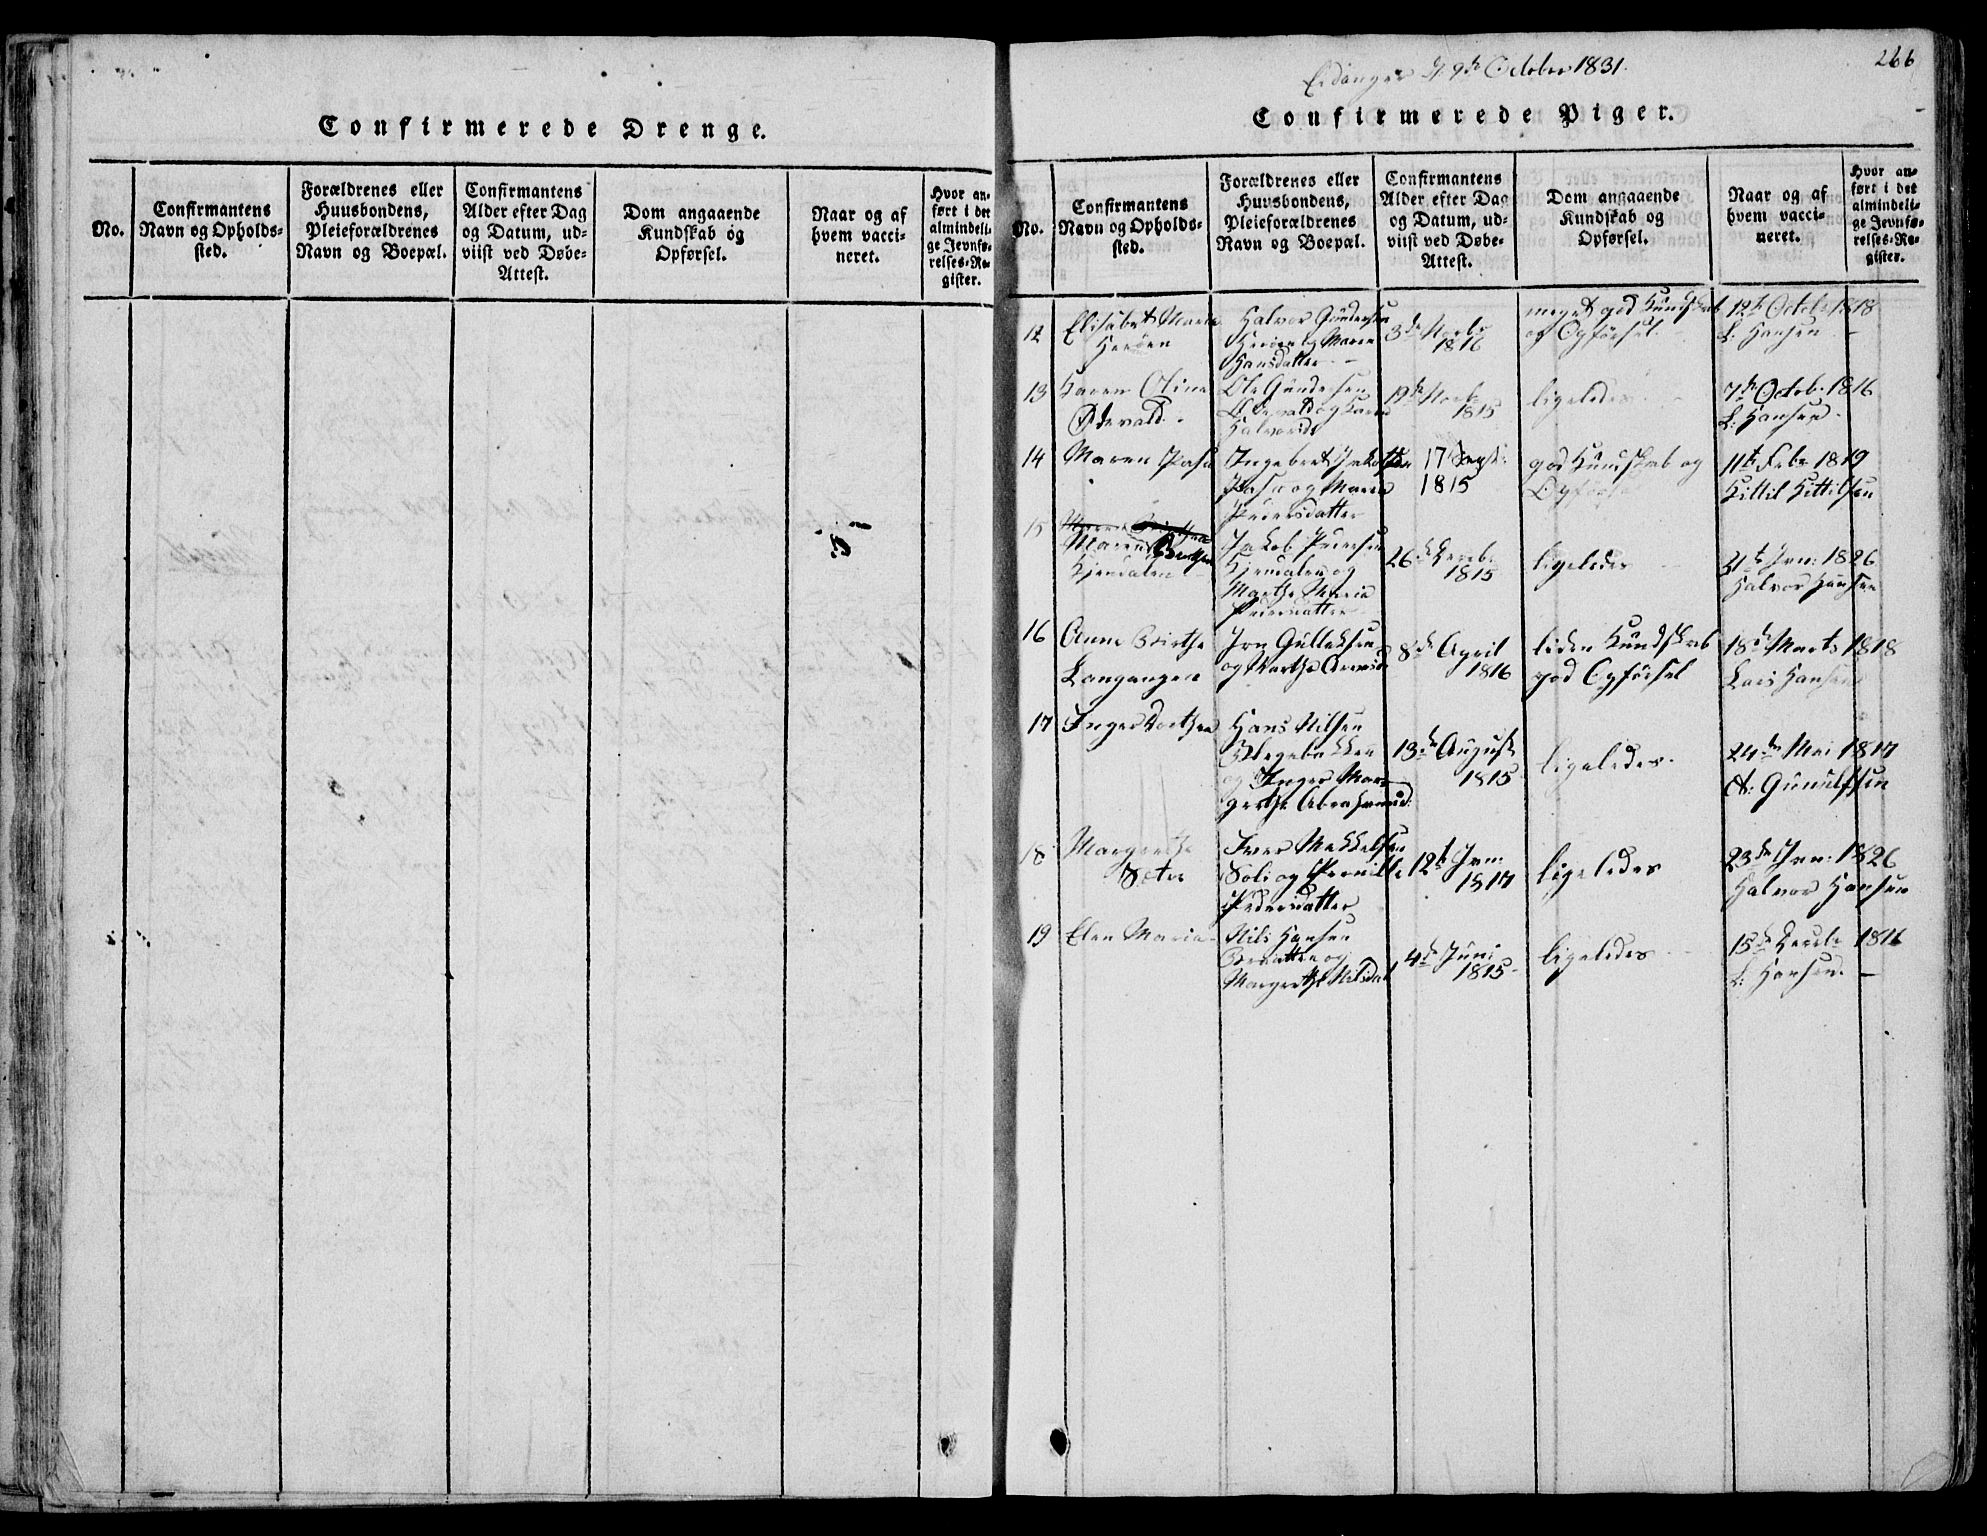 Confirmerede Drenge.
No.
Confirmantens
Navn og Opholds-
sted.
Forældrenes eller
Huusbondens,
Pleieforældrenes
Navn og Boepæl.
Confirmantens
Alder efter Dag
og Datum, ud-
viist ved Døbe-
Attest.
Dom angaaende
Kundskab og
Opførsel.
Naar og af
hvem vacci-
neret.
Hvor an-
ført i det
almindeli-
ge Jevnfø-
relses-Re-
gister.
Eidanger d. 9de October 1831.
266
Confirmerede Piger.
No.
Confirmantens
Navn og Opholds-
sted.
Forældrenes eller
Huusbondens,
Pleieforældrenes
Navn og Boepæl.
Confirmantens
Alder efter Dag
og Datum, ud-
viist ved Døbe-
Attest.
Dom angaaende
Kundskab og
Opførsel.
Naar og af
hvem vacci-
neret.
Hvor an-
ført i det
almindeli-
ge Jevnfø-
relses-Re-
gister.
12
Elisabet Maria
Herøen
Halvor Gundersen
Herøen og Maren
Hansdatter
3de Novbr
1816
meget god Kundskab
og Opførsel.
12te Octobr 1818
L. Hansen
13
Karen Oline
Ødevald.
Ole Gundersen
Ødevald og Karen
Halvorsdr
19de Novbr
1815
ligeledes
7de Octob. 1816
L. Hansen.
14
Maren Pasa
Ingebret Jakobsen
Pasa og Maria
Pedersdatter
17 Sept:
1815
god Kundskab og
Opførsel
11te Febr 1819
Kittil Kittilsen
15
Maren Birthea
Kjendalen
Jakob Pedersen
Kjendalen og
Marthe Maria
Pedersdatter
26de Decemb.
1815
ligeledes
31te Jan: 1826
Halvor Hansen
16
Anne Birthe
Langangen
Jon Gullaksen
og Marthe Arensd
8de April
1816
liden Kundskab
god Opførsel
18de Marts 1818
Lars Hansen
17
Inger Dorthea
Hans Nilsen
og Inger Mar-
grethe Abrahamsd:
13de August
1815
ligeledes.
24de Mai 1817
A: Gunulfsen
18
Margrethe
Sæter
Iver Mekkelsen
Soli og Pernille
Pedersdatter
12te Jan:
1817
ligeledes
23de Jan: 1826
Halvor Hansen
19
Elen Maria
Nils Hansen
Margrethe Nilsdat
4de Juni
1815
ligeledes
15de Decbr 1816
L. Hansen.